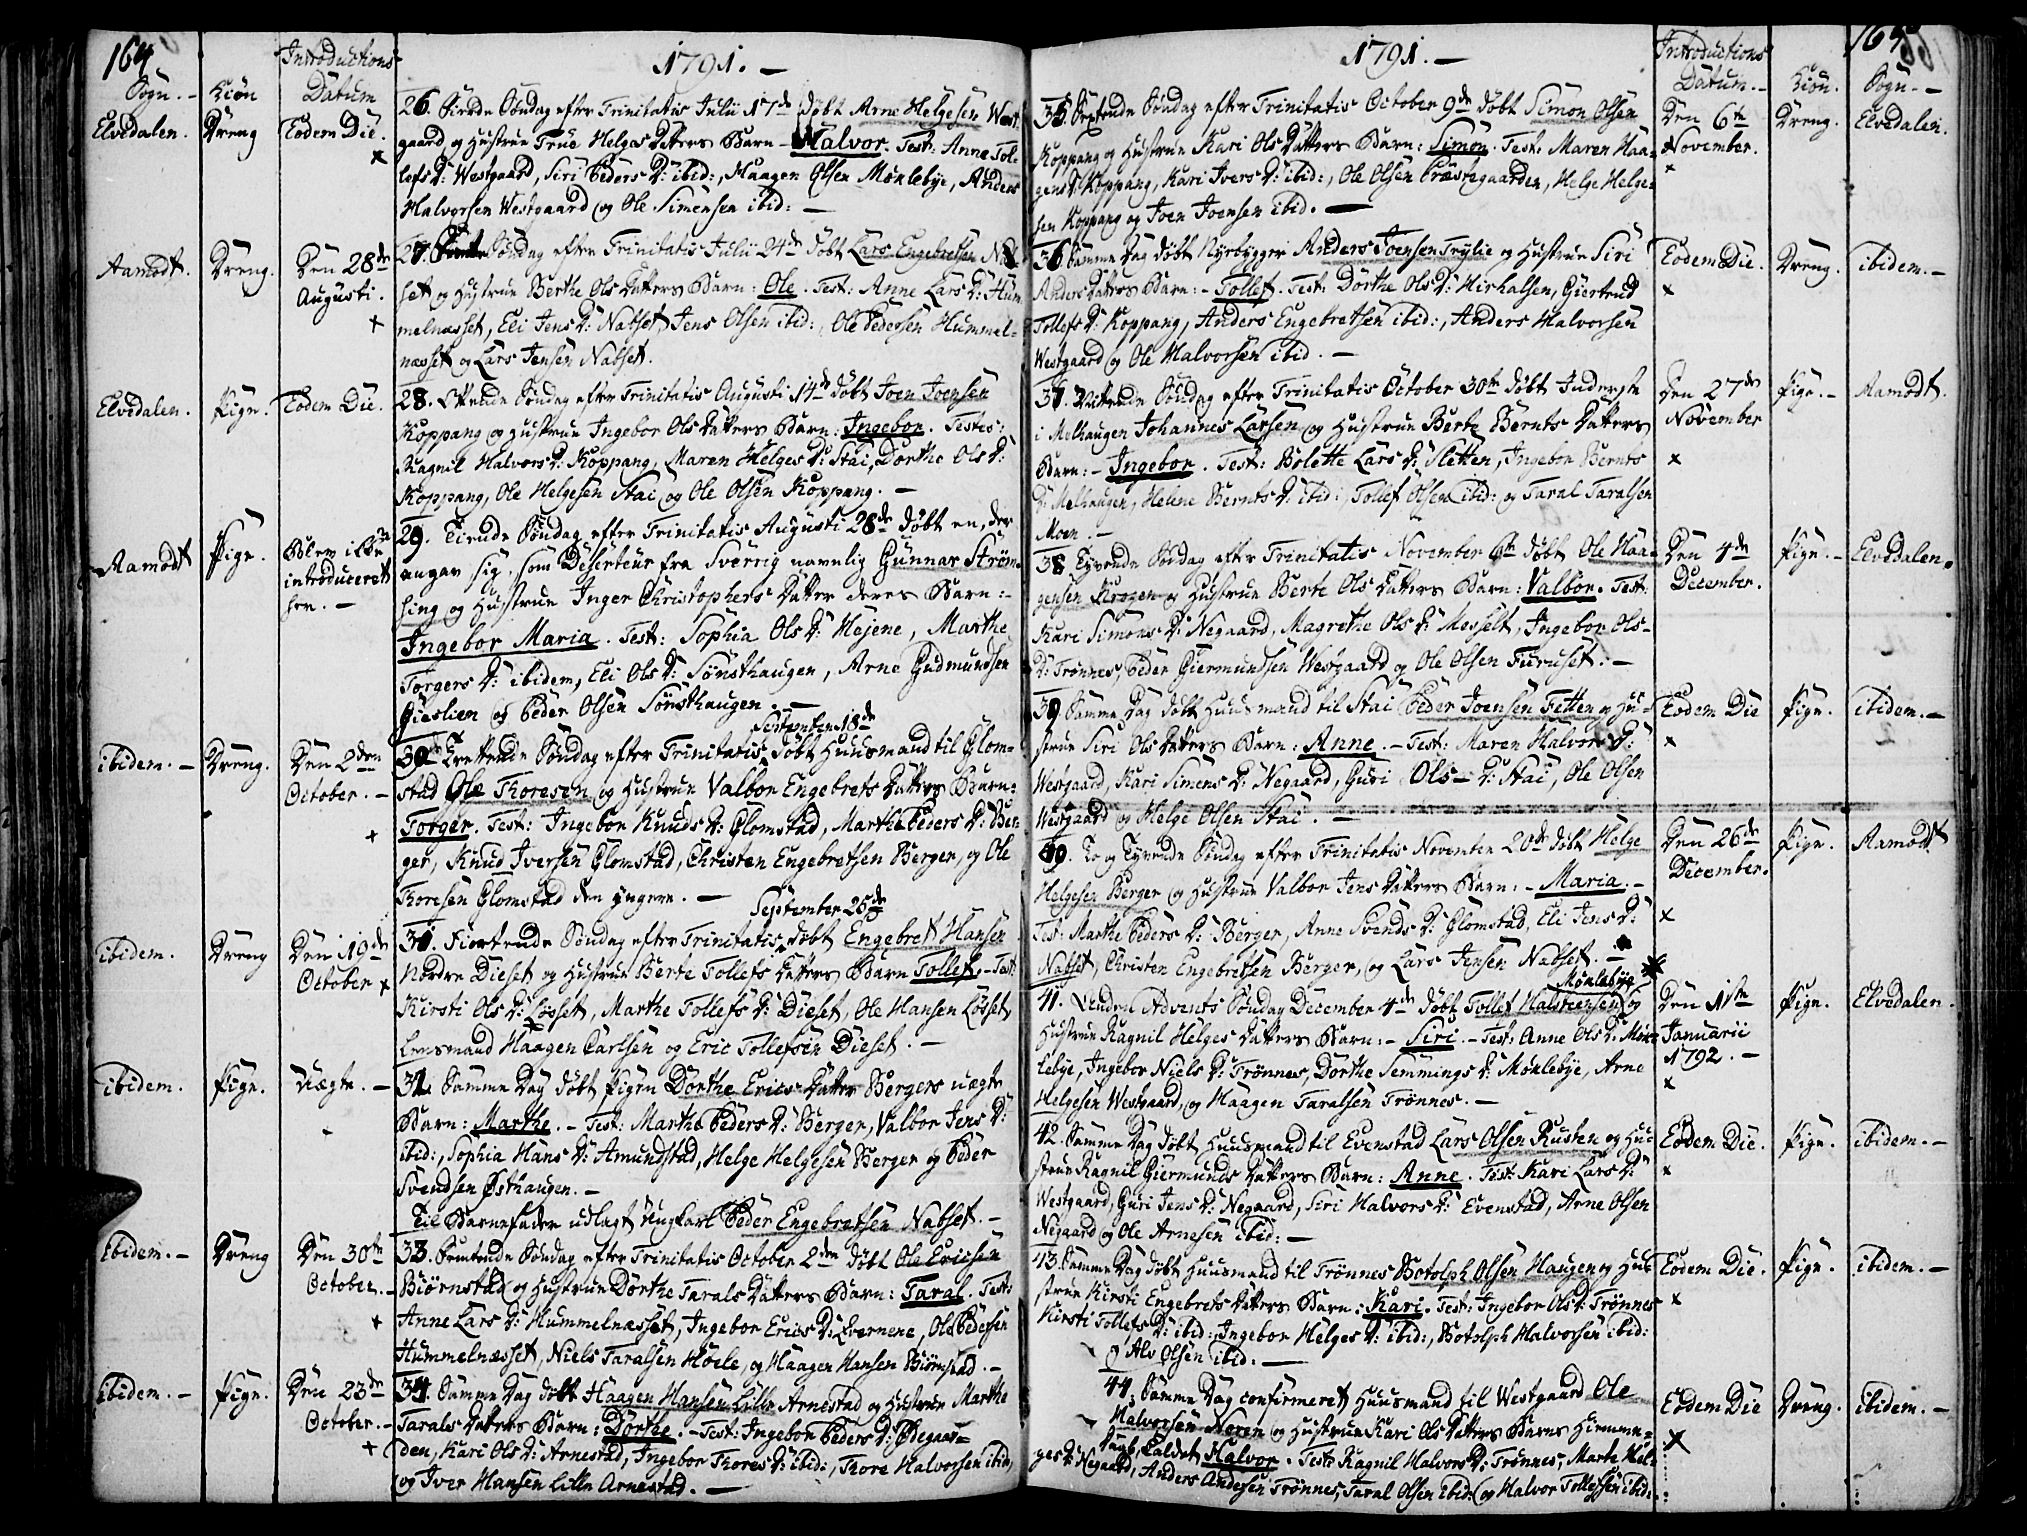 164.
1791. —
Sogn. —
Kiön
Introductions Datum
Elvedalen.
Dreng
Eodem Die.
26. Siende Söndag efter Trinitatis Julii 17de döbt Arne Helgesen West-
gaard og Hustrue True Helges Datters Barn — Halvor. Test: Anne Tol-
lefs D: Westgaard, Siri Peders D: ibid:, Haagen Olsen Möklebye, Anders
Halvorsen Westgaard og Ole Simensen ibid: —
Aamodt.
Dreng.
Den 28de
Augusti.
27. Söndag efter Trinitatis Julii 24de döbt Lars Engebretsen Nab-
set og Hustrue Berthe Ols Datters Barn: Ole. Test: Anne Lars D: Hum-
melnæsset, Eli Jens D: Nabset, Jens Olsen ibid:, Ole Pedersen Hummel-
næsset og Lars Jensen Nabset.
Elvedalen.
Pige.
Eodem Die.
28. Ottende Söndag efter Trinitatis Augusti 14de döbt Joen Joensen
Koppang og Hustrue Ingebor Ols Datters Barn: Ingebor. Testes:
Ragnil Halvors D: Koppang, Maren Helges D: Stai, Dorthe Ols D:
Koppang, Ole Helgesen Stai og Ole Olsen Koppang. —
Aamodt
Pige.
Blev ikke
introduceret
her. —
29. Tiende Söndag efter Trinitatis Augusti 28de döbt en, der
angav sig, som Deserteur fra Sverrig navnlig Gunnar Ström-
sing og Hustrue Inger Christophers Datter deres Barn:
Ingebor Maria. Test: Sophia Ols D: Hejene, Marthe
Torgers D: ibidem, Eli Ols D: Sönsthaugen, Arne Gudmundsen
Gieslien og Peder Olsen Sönsthaugen. —
ibidem. —
Dreng.
Den 2den
October. —
September 18de
30. Trettende Söndag efter Trinitatis döbt Huusmand til Glom-
stad Ole Thoresen og Hustrue Valbor Engebrets Datters Barn:
Torger. Test: Ingebor Knuds D: Glomstad, Marthe Peders D: Ber-
ger, Knud Iversen Glomstad, Christen Engebretsen Berger, og Ole
Thoresen Glomstad den yngere. —
ibidem.
Dreng
Den 19de
October
September 25de
31. Fiortende Söndag efter Trinitatis döbt Engebret Hansen
Nordre Dieset og Hustrue Berte Tollefs Datters Barn Tollef. — Test:
Kirsti Ols D: Lösset, Marthe Tollefs D: Dieset, Ole Hansen Lösset,
Lensmand Haagen Carlsen og Eric Tollefsen Dieset. —
ibidem.
Pige.
Uægte. —
32. Samme Dag döbt Pigen Dorthe Erics Datter Bergers uægte
Barn: Marthe. — Test: Marthe Peders D: Berger, Valbor Jens D:
ibid:, Sophia Hans D: Amundstad, Helge Helgesen Berger og Peder
Svendsen Östhaugen. —
Til Barnefader udlagt Ungkarl Peder Engebretsen Nabset. —
Ebidem. —
Dreng
Den 30te
October. —
33. Femtende Söndag efter Trinitatis October 2den döbt Ole Ericsen
Biörnstad og Hustrue Dorthe Tarals Datters Barn: Taral. Test:
Anne Lars D: Hummelnæsset, Ingebor Erics D: Evernene, Ole Pedersen
Hummelnæsset, Niels Taralsen Hoele, og Haagen Hansen Biörnstad. —
ibidem. —
Pige.
Den 23de
October. —
34. Samme Dag döbt Haagen Hansen Lille Arnestad og Hustrue Marthe
Tarals Datters Barn: Dorthe. — Test: Ingebor Peders D: Ödegaar-
den, Kari Ols D: Arnestad, Ingebor Thores D: ibid:, Thore Halvorsen ibid,
og Iver Hansen Lille Arnestad. —
1791. —
Introductions
Datum. —
Kiön.
Sogn. —
165
35. Sextende Söndag efter Trinitatis October 9de döbt Simon Olsen
Koppang og Hustrue Kari Ols Datters Barn: Simon. Test: Maren Haa-
gens D: Koppang, Kari Ivers D: ibid:, Ole Olsen Præstegaarden, Helge Helge-
sen Koppang og Joen Joensen ibid. —
Den 6te
November.
Dreng.
Elvedalen.
36. Samme Dag döbt Nyebygger Anders Joensen Trylie og Hustrue Siri
Anders Datters Barn: — Tollef. Test: Dorthe Ols D: Mirhalsen, Giertrud
Tollefs D: Koppang, Anders Engebretsen ibid:, Anders Halvorsen
Westgaard og Ole Halvorsen ibid. —
Eodem Die.
Dreng.
ibidem. —
37. Nittende Söndag efter Trinitatis October 30te döbt Inderste
i Melhaugen Johannes Larsen og Hustrue Berte Bernts Datters
Barn: — Ingebor. Test: Bolette Lars D: Sletten, Ingebor Bernts
D: Melhaugen, Helene Bernts D: ibid:, Tollef Olsen ibid: og Taral Taralsen
Moen. —
Den 27de
November
Pige. —
Aamodt.
38. Tyvende Söndag efter Trinitatis November 6te döbt Ole Haa-
gensen Krogen og Hustrue Berte Ols Datters Barn: Valbor. Test:
Kari Simons D: Negaard, Magrethe Ols D: Messelt, Ingebor Ols-
D: Trönnes, Peder Giermundsen Westgaard og Ole Olsen Furuset. —
Den 4de
December.
Pige. —
Elvedalen.
39. Samme Dag döbt Huusmand til Stai Peder Joensen Fetten og Hu-
strue Siri Ols Datters Barn: Anne. — Test: Maren Halvors D:
Westgaard, Kari Simens D: Negaard, Guri Ols — D: Stai, Ole Olsen
Westgaard og Helge Olsen Stai. —
Eodem Die
Pige.
ibidem. —
40. To og Tyvende Söndag efter Trinitatis November 20de döbt Helge
Helgesen Berger og Hustrue Valbor Jens Datters Barn: — Maria. —
Test: Marthe Peders D: Berger, Anne Svends D: Glomstad, Eli Jens D:
Nabset, Christen Engebretsen Berger, og Lars Jensen Nabset. —
Den 26de
December.
Pige.
Aamodt
Möklebye
41. Anden Advents Söndag December 4de döbt Tollef Halsteensen og
Hustrue Ragnil Helges Datters Barn: — Siri. — Test: Anne Ols D: Mök-
lebye, Ingebor Niels D: Trönnes, Dorthe Semmings D: Möklebye, Arne
Helgesen Westgaard, og Haagen Taralsen Trönnes. —
Den 1ste
Januarii
1792. —
Pige.
Elvedalen.
42. Samme Dag döbt Huusmand til Evenstad Lars Olsen Rusten og Hu-
strue Ragnil Giermunds Datters Barn: Anne. Test: Kari Lars D:
Westgaard, Guri Jens D: Negaard, Siri Halvors D: Evenstad, Arne Olsen
Negaard og Ole Arnesen ibid: —
Eodem Die.
Pige.
ibidem. —
43. Samme Dag döbt Huusmand til Trönnes Botolph Olsen Haugen og Hu-
strue Kirsti Engebrets Datters Barn: Kari. Test: Ingebor Ols D: Trönnes
Kirsti Tollefs D: ibid:, Ingebor Helges D: ibid:, Botolph Halvorsen ibid:
og Alv Olsen ibid. —
Eodem Die.
Pige.
ibidem. —
44. Samme Dag confirmeret Huusmand til Westgaard Ole
Halvorsen Moren og Hustrue Kari Ols Datters Barns Hiemme-
daab, kaldet Halvor. Test: Ragnil Halvors D: Trönnes, Marte Hel-
ges D: Negaard, Anders Andersen Trönnes, Taral Olsen ibid: og Halvor Tollefsen ibid:
Eodem Die
Dreng.
ibidem. —